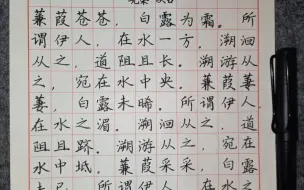 蒹葭苍苍，白露为霜。所
谓伊人，在水一方。溯洄从
之，道阻且长。溯游从
之，宛在水中央。蒹葭萋
萋，白露未晞。所谓伊人
在水之湄。溯洄从之，道
阻且跻。溯游从之，宛在
水中坻。蒹葭采采，白露